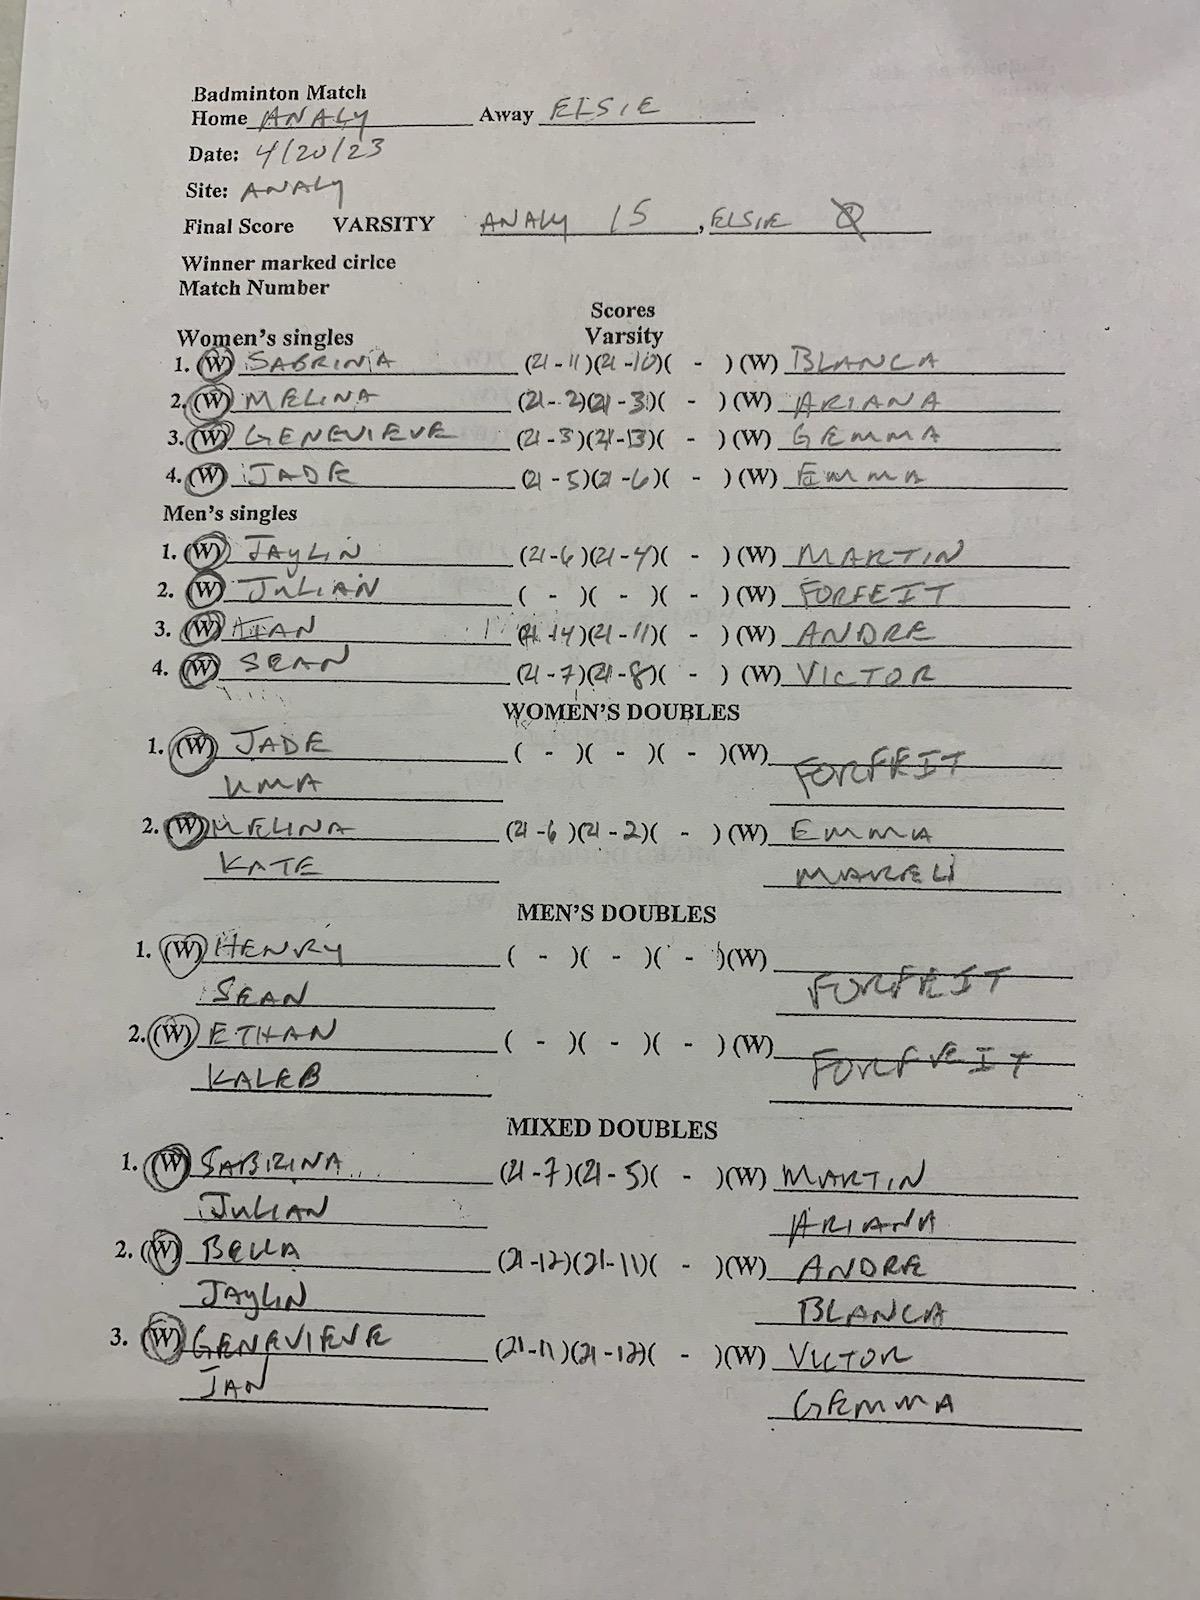 Badminton Match
Home ANALY Away ELSIE
Date: 4/20/23
Site: ANALY
Final Score VARSITY ANALY 15, ELSIE 0
Winner marked cirlce
Match Number
Scores
Women's singles Varsity
1. (W) SABRINA (21-11)(21-10)( - ) (W) BLANCA
2. (W) MELINA (21-2)(21-3)( - ) (W) ARIANA
3. (W) GENEVIEVE (21-3)(21-13)( - ) (W) GEMMA
4. (W) JADE (21-5)(21-6)( - ) (W) EMMA
Men's singles
1. (W) JAYLIN (21-6)(21-4)( - ) (W) MARTIN
2. (W) JULIAN ( - )( - )( - ) (W) FORFEIT
3. (W) IAN (21-14)(21-11)( - ) (W) ANDRE
4. (W) SEAN (21-7)(21-8)( - ) (W) VICTOR
WOMEN'S DOUBLES
1. (W) JADE ( - )( - )( - )(W) FORFEIT
UMA
2. (W) MELINA (21-6)(21-2)( - ) (W) EMMA
KATE MARELI
MEN'S DOUBLES
1. (W) HENRY ( - )( - )( - )(W)
SEAN FORFEIT
2. (W) ETHAN ( - )( - )( - ) (W) FORFEIT
KALEB
MIXED DOUBLES
1. (W) SABRINA (21-7)(21-5)( - )(W) MARTIN
JULIAN ARIANA
2. (W) BELLA (21-12)(21-11)( - )(W) ANDRE
JAYLIN BLANCA
3. (W) GENEVIEVE (21-11)(21-12)( - )(W) VICTOR
IAN GEMMA